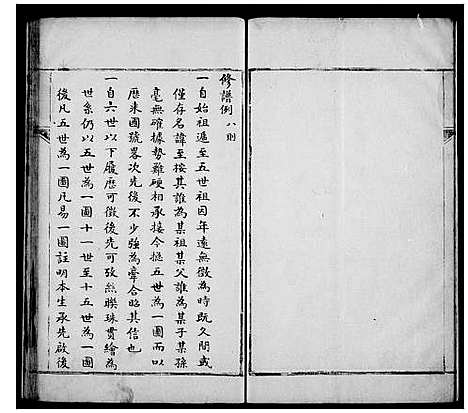 修譜例 八則
一自始祖遞至五世祖因年遠無徵為時既久間或
僅存名諱至按其誰為某祖某父誰為某子某孫
毫無確據勢難硬相承接今挻五世為一圖而以
歷來國號畧次先後不少強為牽合昭其信也
一自六世以下履歷可徵後先可攷絲聯珠貫繪為
世系仍以五世為一圖十一世至十五世為一圖
後凡五世為一圖凡易一圖註明本生承先啟後